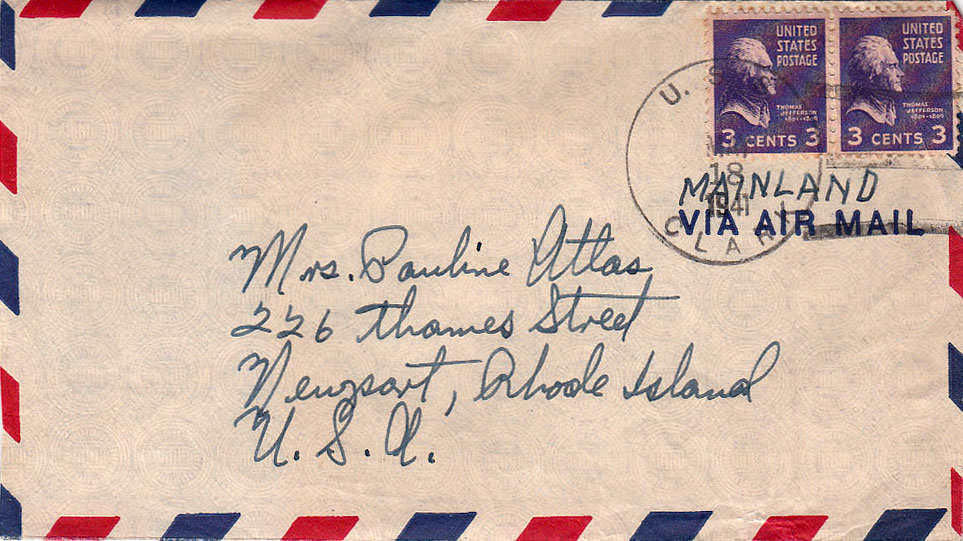 UNITED STATES POSTAGE
THOMAS JEFFERSON
1801-1809
3 CENTS 3
UNITED STATES POSTAGE
THOMAS JEFFERSON
1801-1809
3 CENTS 3
U. S. S.
18
1941
CLARK
MAINLAND
VIA AIR MAIL
Mrs. Pauline Atlas
226 Thames Street
Newport, Rhode Island
U. S. A.